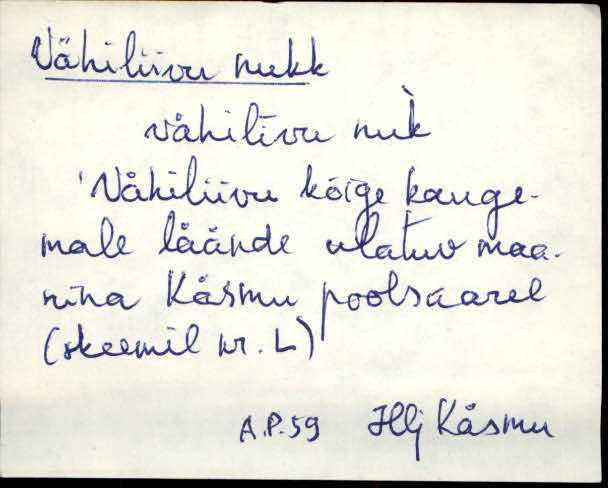 Vähiliivu nukk
vähilīvu nuk̀
'Vähiliivu kõige kauge-
male läände ulatuv maa-
nina Käsmu poolsaarel
(skeemil nr. L)
A.P.59 Hlj Käsmu